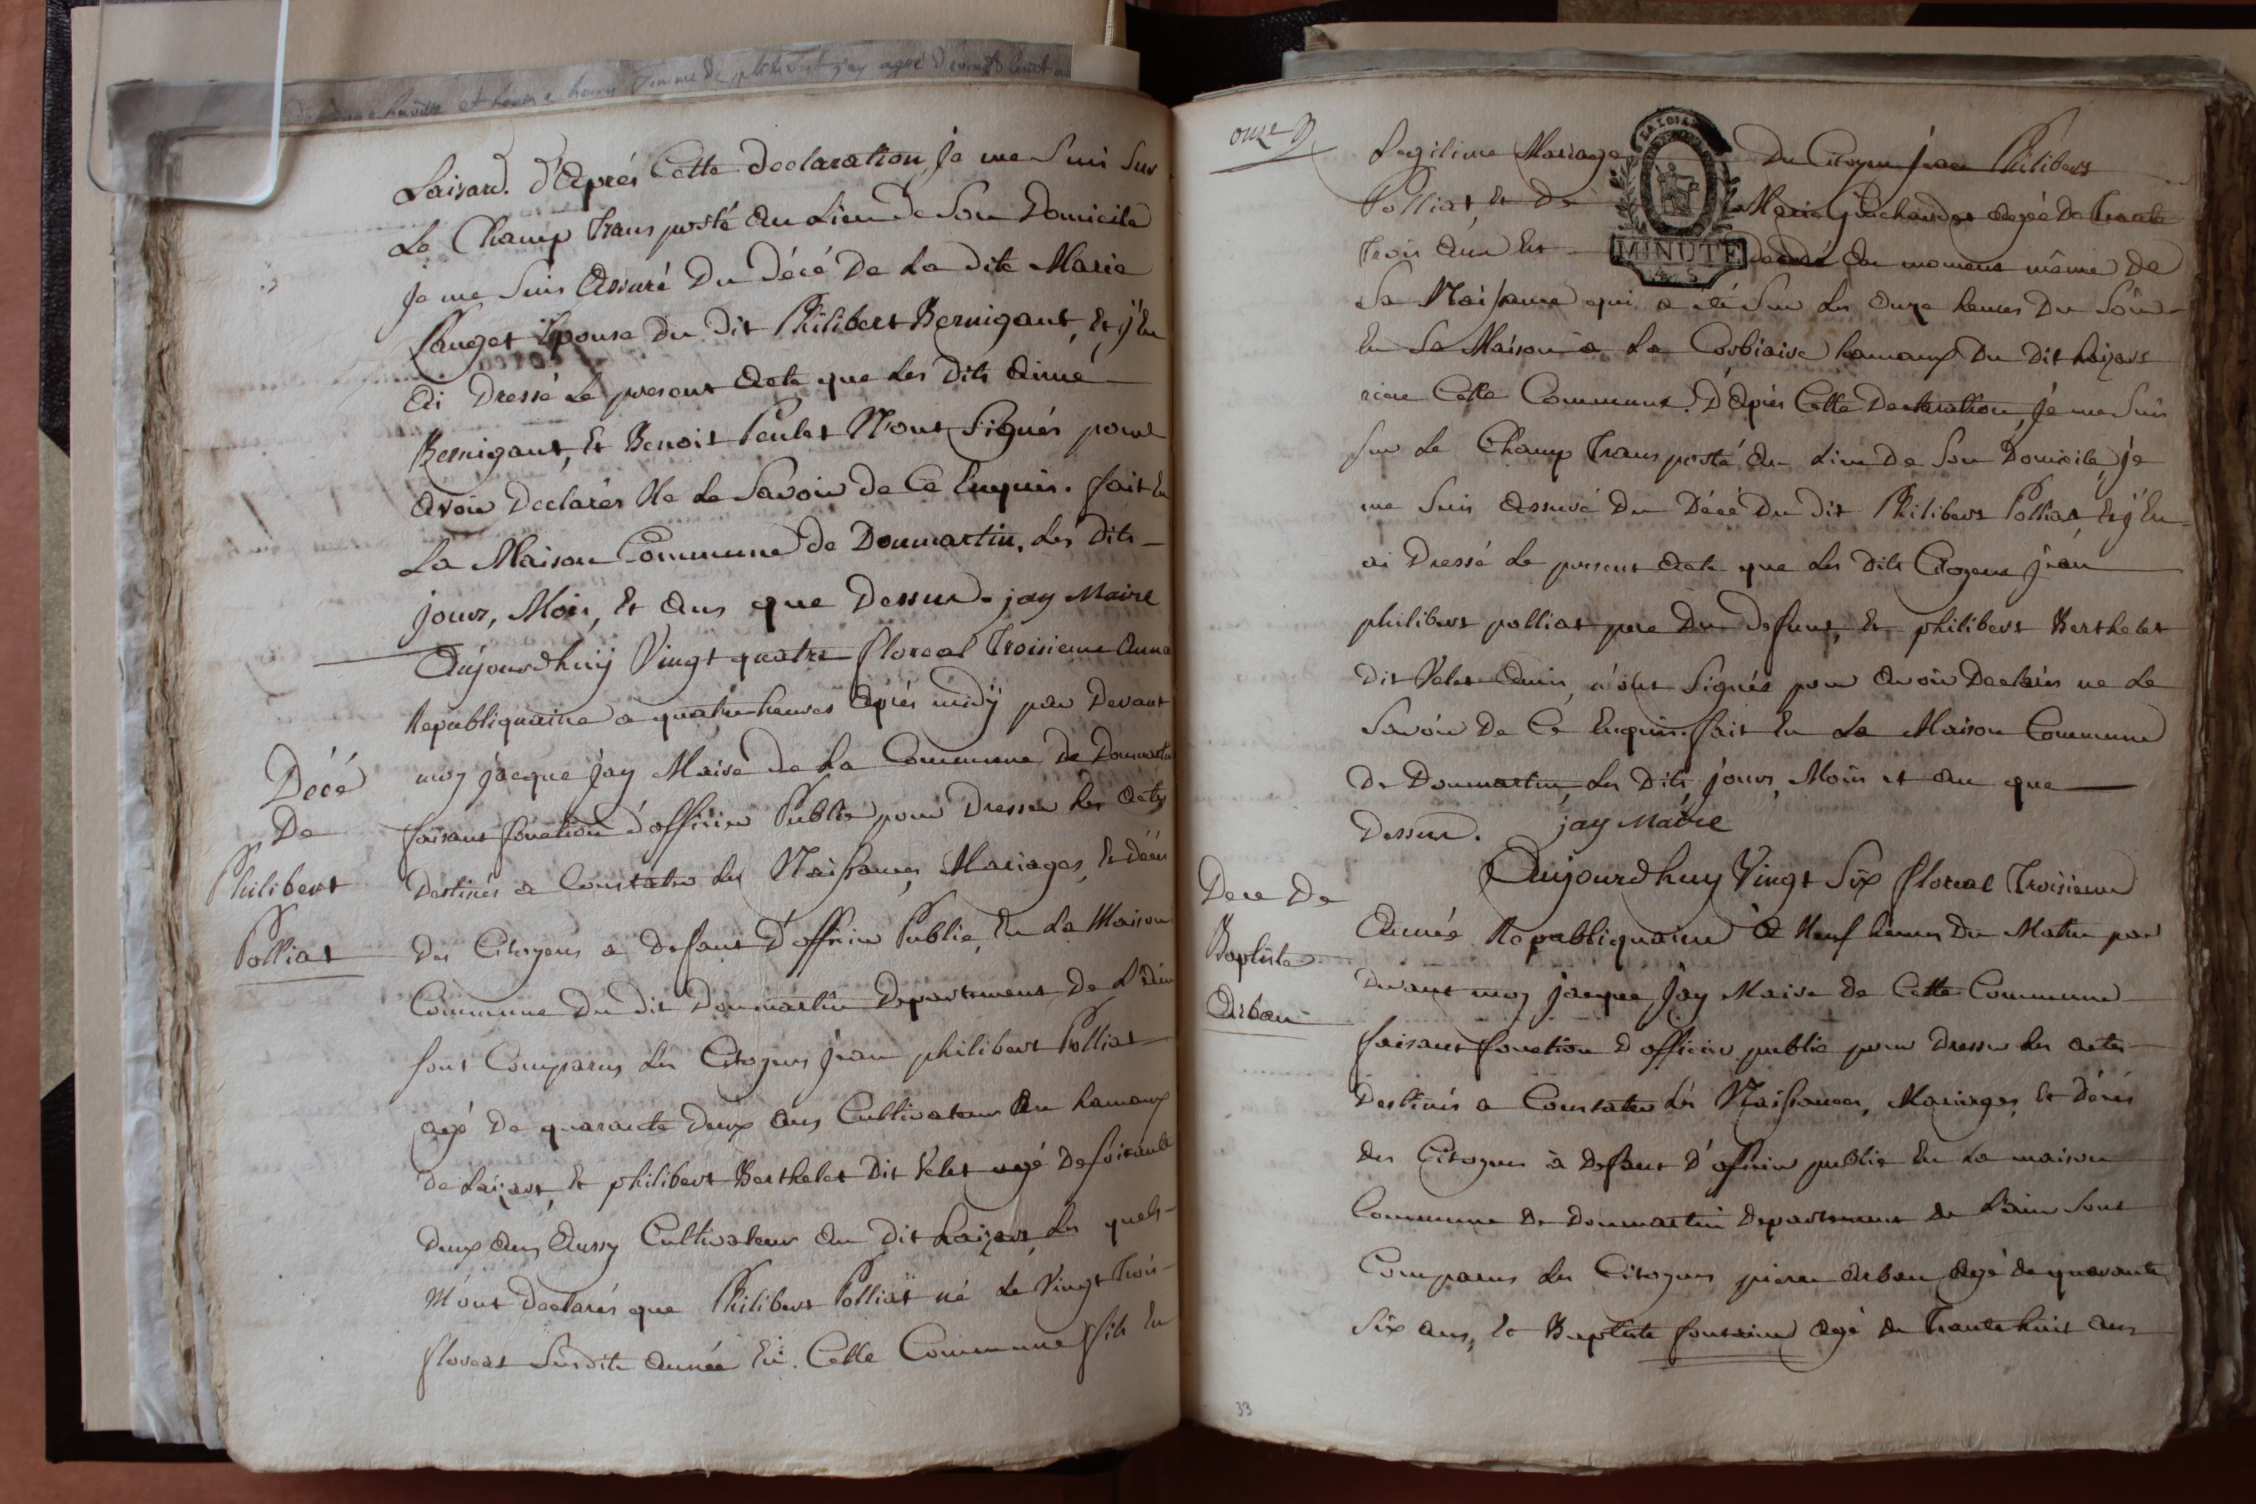 Laisard. D'Aprés Cette declaration, Je me Suis Sur
Le Champ Transporté Au Lieu de Son Domicile
Je me Suis Assuré Du Décé De La dite Marie
Pauget Epouse Du Dit Philibert Bernigaut, Et j'En
Ai Dressé Le present Acte que Les Dits Aimé
Bernigaut, Et Benoit Peulet N'ont Signés pour
Avoir Declarés Ne Le Savoir de Ce Enquis. fait En
La Maison Commune de Donmartin, Les Dits
jours, Mois, Et Ans que Dessus. jay Maire
Aujourdhuÿ Vingt quatre floreal Troisieme Anné
Republiquaine a quatre heures Aprés midÿ par Devant
moy jacque Jay Maire de La Commune de Donmartin
faisant fonction d'officier Public pour Dresser Les Actes
Destinés a Constater Les Naissances, Mariages, Et Décés
Des Citoyens a Defaut D'officier Public, En La Maison
Commune Du Dit Donmartin Departement De L'Ain
Sont Comparus Les Citoyens Jean philibert Polliat
agé De quarante Deux Ans Cultivateur Au hamaux
De Laizart, Et philibert Berthelet Dit Velet agé De soixante
Deux Ans Aussy Cultivateur Au Dit Laizart, Les quels
M'ont Declarés que Philibert Polliat né Le Vingt Trois
floreal Susdite Année En Cette Commune fils En
Décé
De
Philibert
Polliat
onze
Legitime Mariage Du Citoyen Jean Philibert
Polliat, Et De Marie Guichardet Agée De Trente
Trois Ans Est Decedé Au moment même De
Sa Naissance qui a été Sur Les Onze heures Du Soir
En Sa Maison a La Corbiaire hamaux Du Dit Laizart
riere Cette Commune. D'Aprés Cette Declaration, Je me Suis
Sur Le Champ Transporté Au Lieu De Son Domicile, Je
me Suis Assuré Du Décé Du Dit Philibert Polliat Et j'En
ai Dressé Le present Acte que Les Dits Citoyens Jean
philibert polliat pere Du Defunt, Et philibert Berthelet
Dit Velet Amis, n'ont Signés pour Avoir Declarés ne Le
Savoir De Ce Enquis. fait En La Maison Commune
De Donmartin, Les Dits, jours, Mois et An que
Dessus. jay Maire
LA LOI
MINUTE
Dece De
Baptiste
Arban
Aujourdhuy Vingt Six floreal Troisieme
Année Republiquaine A Neuf heures Du Matin par
Devant moy jacque Jay Maire de Cette Commune
faisant fonction D'officier public pour Dresser Les actes
Destinés a Constater Les Naissances, Mariages, Et Décés
des Citoyens à Defaut D'officier public En La maison
Commune De Donmartin Departement De Lain Sont
Comparus Les Citoyens pierre Arban, Agé de quarante
Six ans, Et Baptiste fontaine agé De Trente huit ans
33